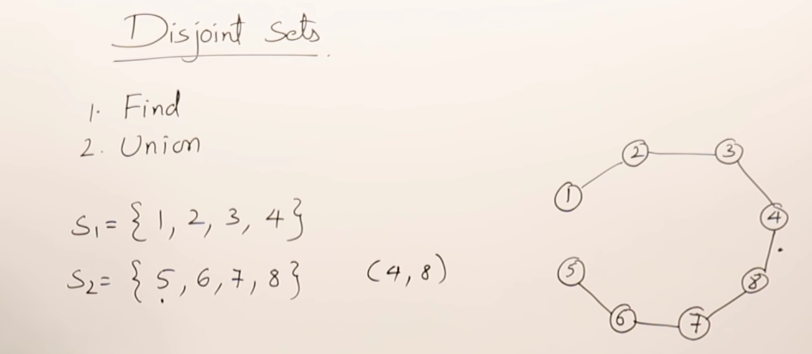 Disjoint Sets.
1. Find
2. Union
S₁ = { 1, 2, 3, 4 }
S₂ = { 5, 6, 7, 8 } (4, 8)
1
2
3
4
5
6
7
8